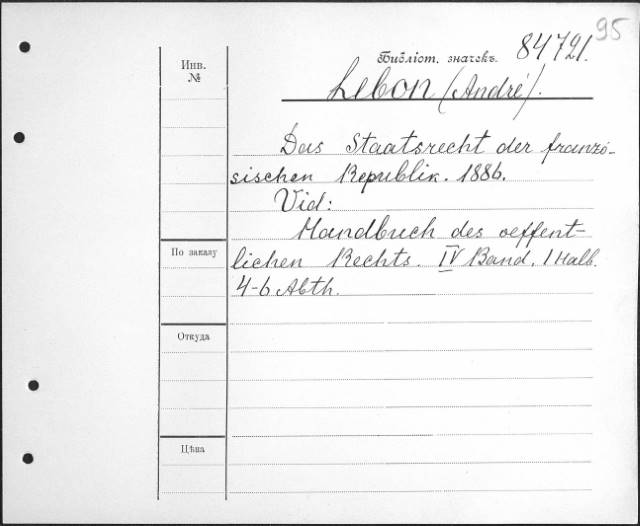 95
Библіот. значекъ. 84721.
Инв.
№
Lebon (André).
Das Staatsrecht der franzö-
sischen Republik. 1886.
Vid:
Handbuch des oeffent-
lichen Rechts. IV Band. 1 Halb.
4-6 Abth.
По заказу
Откуда
Цѣна